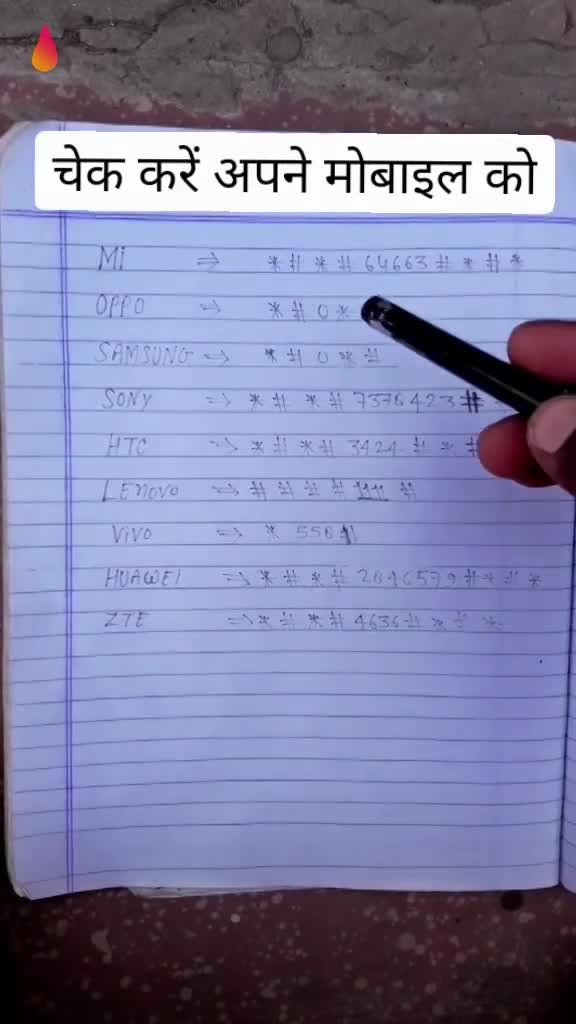 चेक करें अपने मोबाइल को
Mi ⇒ *#*#64663#*#*
OPPO ⇒ *#0*
SAMSUNG ⇒ *#0*#
SONY ⇒ *#*#7378423#
HTC ⇒ *#*#3424#*#
LENOVO ⇒ ####1111#
ViVO ⇒ *558#
HUAWEI ⇒ *#*#2846579#*#*
ZTE ⇒ *#*#4636#*#*